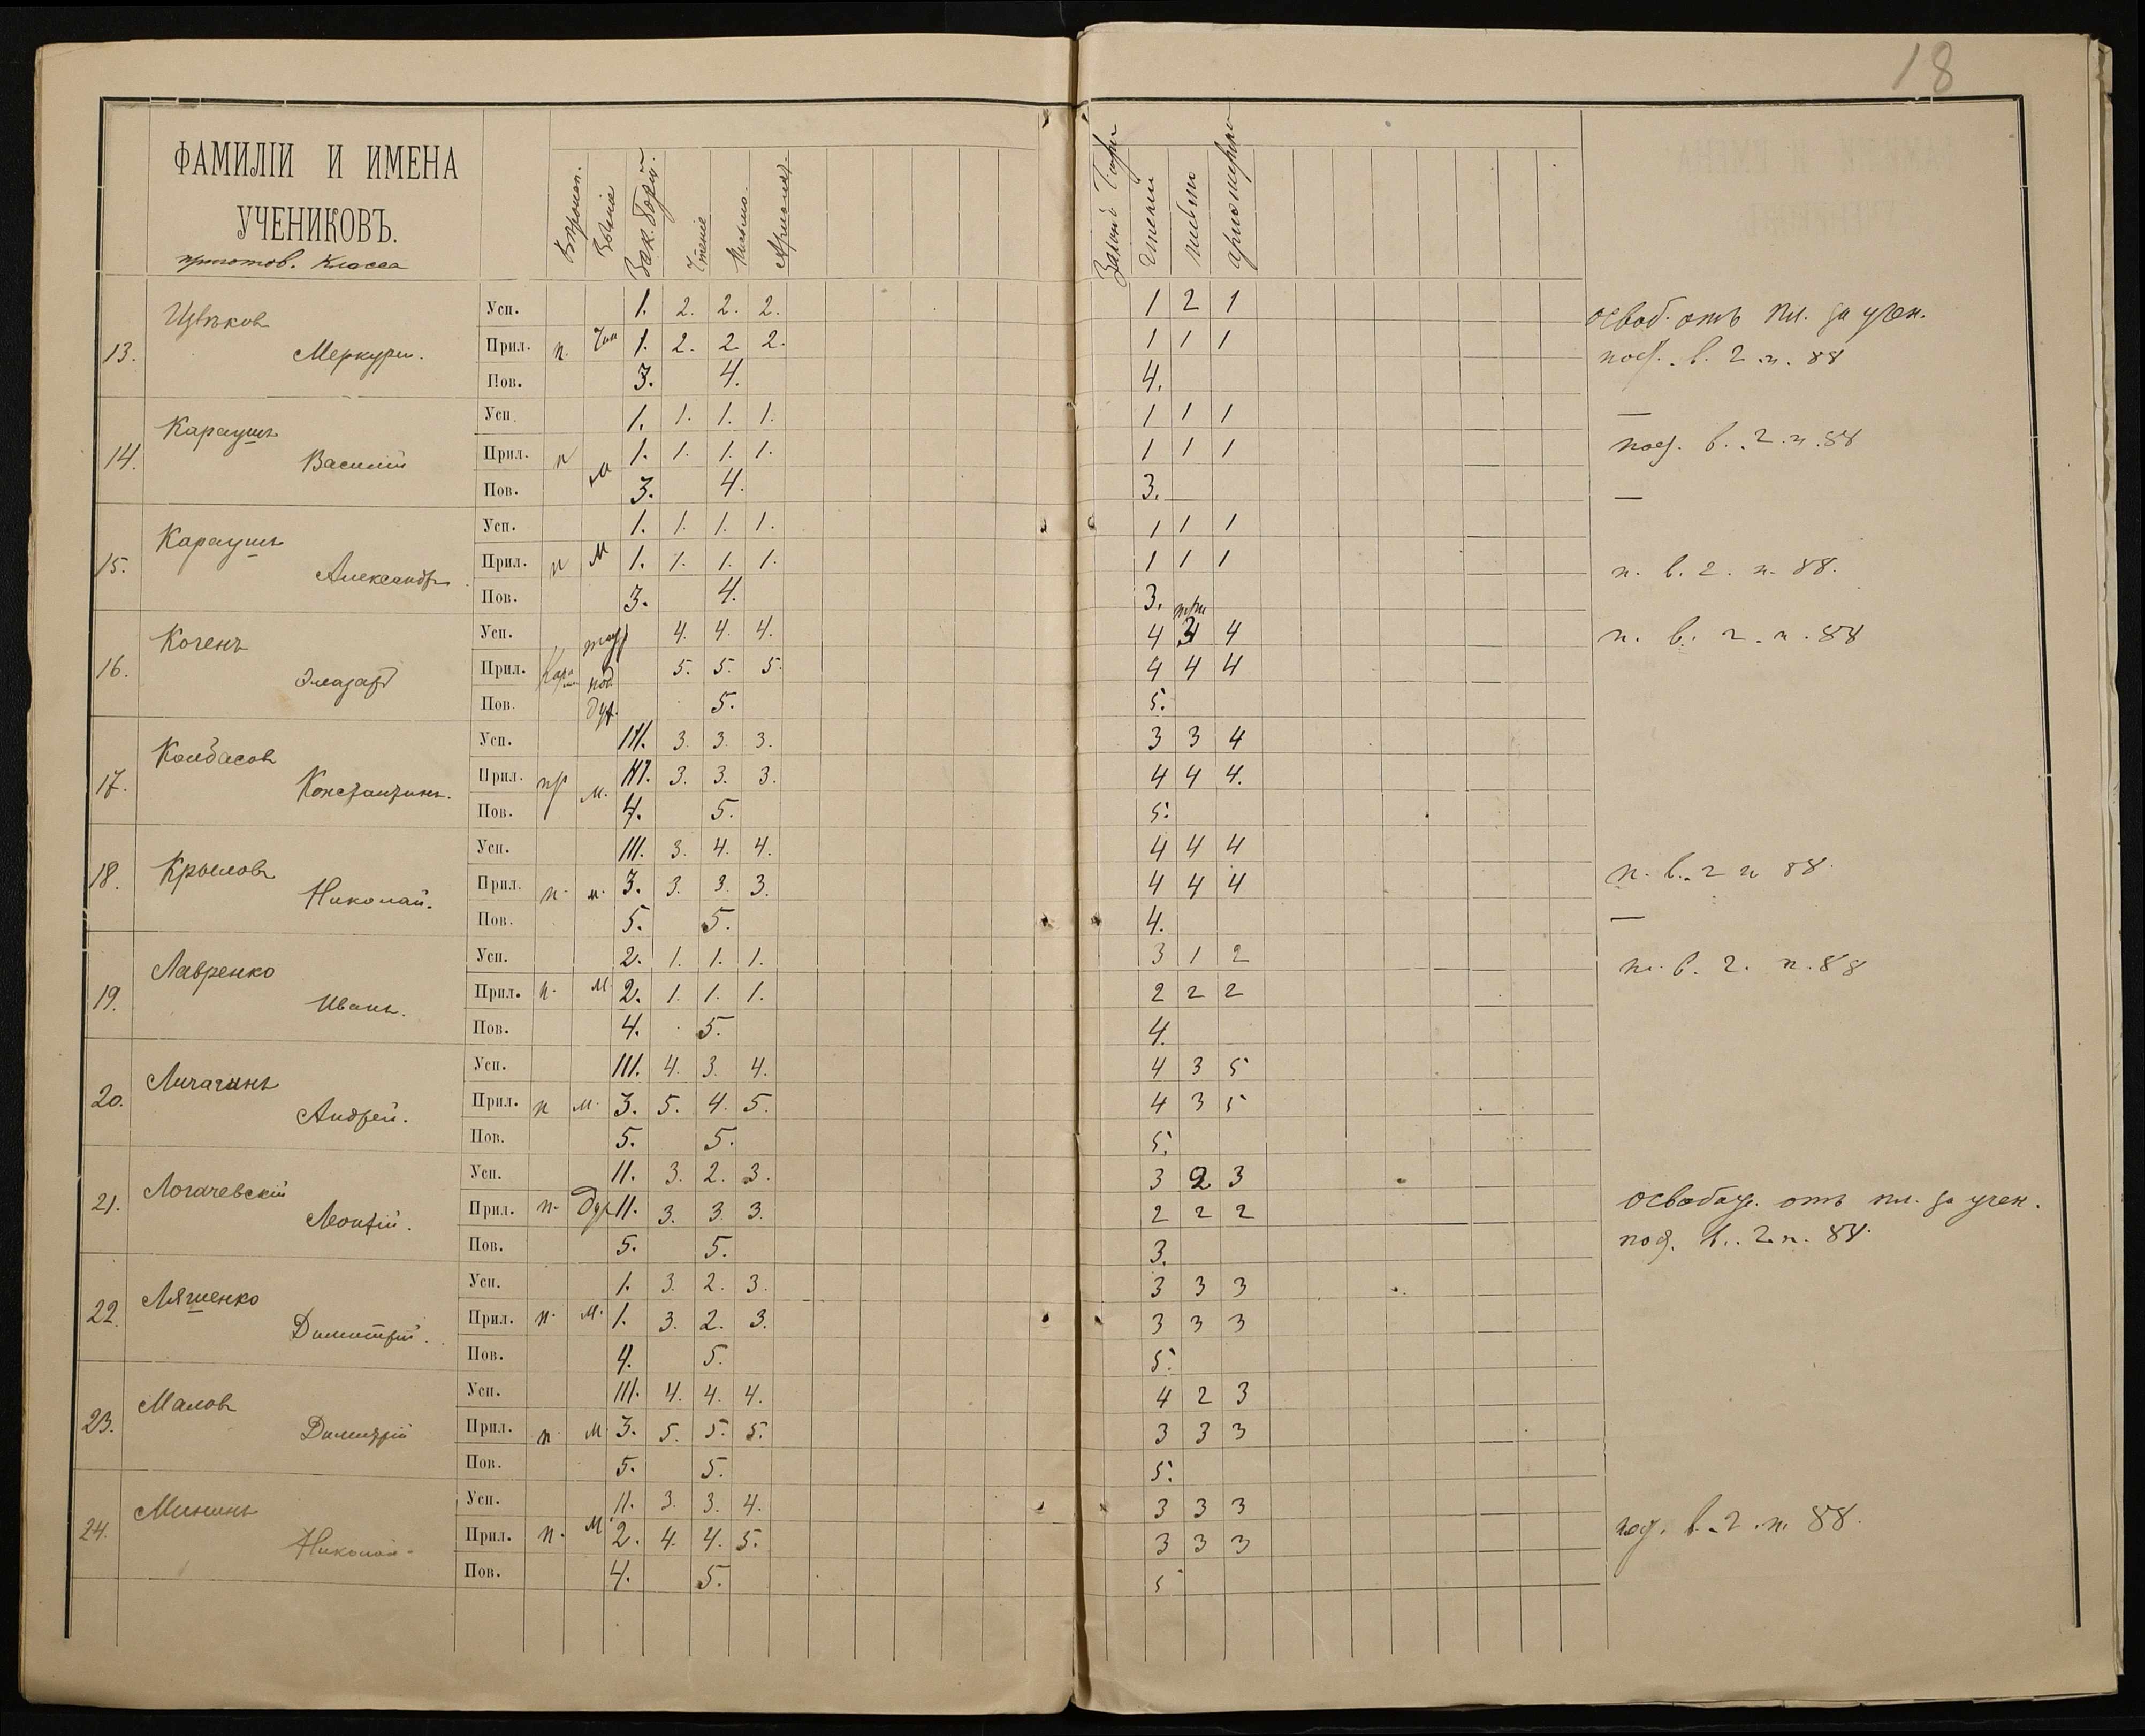 18
ФАМИЛІИ И ИМЕНА
УЧЕНИКОВЪ.
приготов. класса
Вѣроисп. Званіе Зак. Бож. Чтеніе Письмо. Ариѳмет.
Законъ чтеніе письмо
13. Меркурій.
Усп. 1. 2. 2. 2. 1 2 1
Прил. п. 1. 2. 2. 2. 1 1 1
Пов. 3. 4. 4.
освоб. отъ пл. за учен.
в. 2. п. 88
14. Караушъ Василій
Усп. 1. 1. 1. 1. 1 1 1
Прил. п м 1. 1. 1. 1. 1 1 1
Пов. 3. 4. 3.
в. 2. п. 88
15. Караушъ Александръ.
Усп. 1. 1. 1. 1. 1 1 1
Прил. п м 1. 1. 1. 1. 1 1 1
Пов. 3. 4. 3.
п. в. 2. п. 88.
16. Когенъ
Усп. 4. 4. 4. 4 три 3 4
Прил. 5. 5. 5. 4 4 4
Пов. 5. 5.
п. в. 2. п. 88
17. Колбасовъ Константинъ.
Усп. III. 3. 3. 3. 3 3 4
Прил. м. III. 3. 3. 3. 4 4 4.
Пов. 4. 5. 5.
18. Крыловъ Николай.
Усп. III. 3. 4. 4. 4 4 4
Прил. п. м. 3. 3. 3. 3. 4 4 4
Пов. 5. 5. 4.
п. в. 2 п 88.
19. Лавренко Иванъ.
Усп. 2. 1. 1. 1. 3 1 2
Прил. п. м. 2. 1. 1. 1. 2 2 2
Пов. 4. 5. 4.
п. в. 2. п. 88
20. Личагинъ Андрей.
Усп. III. 4. 3. 4. 4 3 5
Прил. п м. 3. 5. 4. 5. 4 3 5
Пов. 5. 5. 5.
21. Логачевскій Леонтій.
Усп. II. 3. 2. 3. 3 2 3
Прил. п. II. 3. 3. 3. 2 2 2
Пов. 5. 5. 3.
отъ пл. за учен.
в. 2. п. 88.
22. Ляшенко Димитрій.
Усп. 1. 3. 2. 3. 3 3 3
Прил. п. м. 1. 3. 2. 3. 3 3 3
Пов. 4. 5. 5.
23. Маловъ Димитрій
Усп. III. 4. 4. 4. 4 2 3
Прил. п. м. 3. 5. 5. 5. 3 3 3
Пов. 5. 5. 5.
24. Мининъ Николай.
Усп. II. 3. 3. 4. 3 3 3
Прил. п. м. 2. 4. 4. 5. 3 3 3
Пов. 4. 5. 5
в. 2. п. 88.